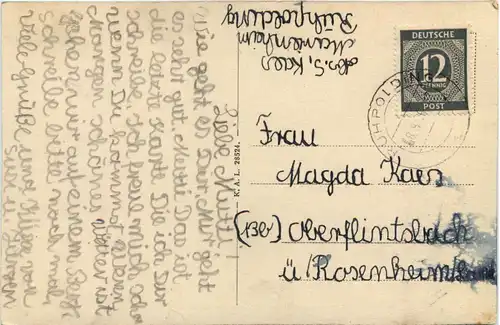 Abs. S. Kaes
Marienheim
Ruhpolding
DEUTSCHE
12
PFENNIG
POST
RUHPOLDING
Frau
Magda Kaes
Oberflintsbach
ü/Rosenheim
K. A. L.
Liebe Mutti!
Wie geht es Dir. Mir geht
es sehr gut. Mutti Das ist
die letzte Karte Die ich Dir
schreibe. Ich freue mich schon
wenn Du kommst
Morgen schönes
gehen wir auf einen
schreibe bitte noch mal
Viele Grüße und Küße von